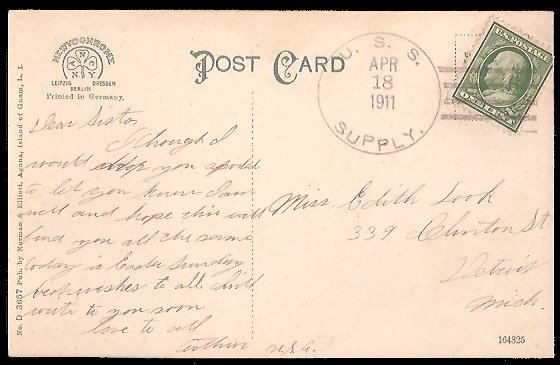 NEWVOCHROME
A
N C
N Y
LEIPZIG DRESDEN
BERLIN
Printed in Germany.
POST CARD
U. S. S.
APR
18
1911
SUPPLY.
U.S. POSTAGE
ONE CENT
No. D 3657 Pub. by Norman & Elliott, Agana, Island of Guam, L. I.
Dear Sister
I thought I
would drop you a postal
to let you know I am
well and hope this will
find you all the same
today is Easter Sunday
best wishes to all I will
write to you soon
love to all
Arthur U.S.A.
Miss. Edith Look
339 Clinton St
Detroit
Mich.
164825